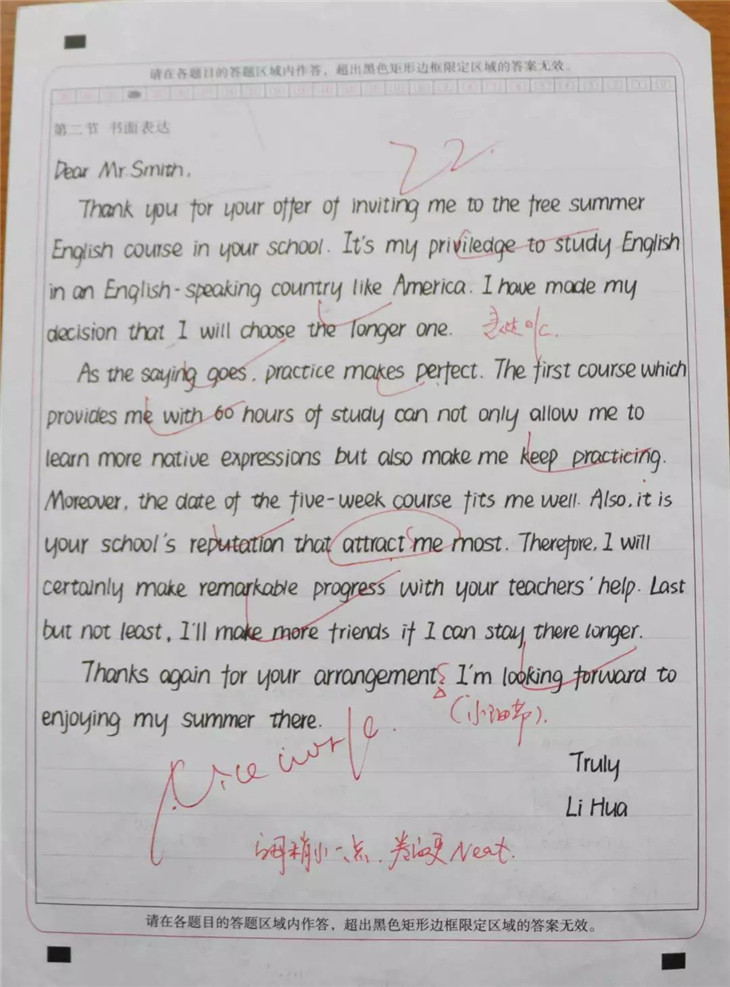 请在各题目的答题区域内作答，超出黑色矩形边框限定区域的答案无效。
第二节 书面表达
22.
Dear Mr. Smith,
Thank you for your offer of inviting me to the free summer
English course in your school. It's my priviledge to study English
in an English-speaking country like America. I have made my
decision that I will choose the longer one.
As the saying goes, practice makes perfect. The first course which
provides me with 60 hours of study can not only allow me to
learn more native expressions but also make me keep practicing.
Moreover, the date of the five-week course fits me well. Also, it is
your school's reputation that attract me most. Therefore, I will
certainly make remarkable progress with your teachers' help. Last
but not least, I'll make more friends if I can stay there longer.
Thanks again for your arrangement. I'm looking forward to
enjoying my summer there.
(小细节).
Nice work.
Truly
Li Hua
稍小一点, 卷面更Neat.
请在各题目的答题区域内作答，超出黑色矩形边框限定区域的答案无效。